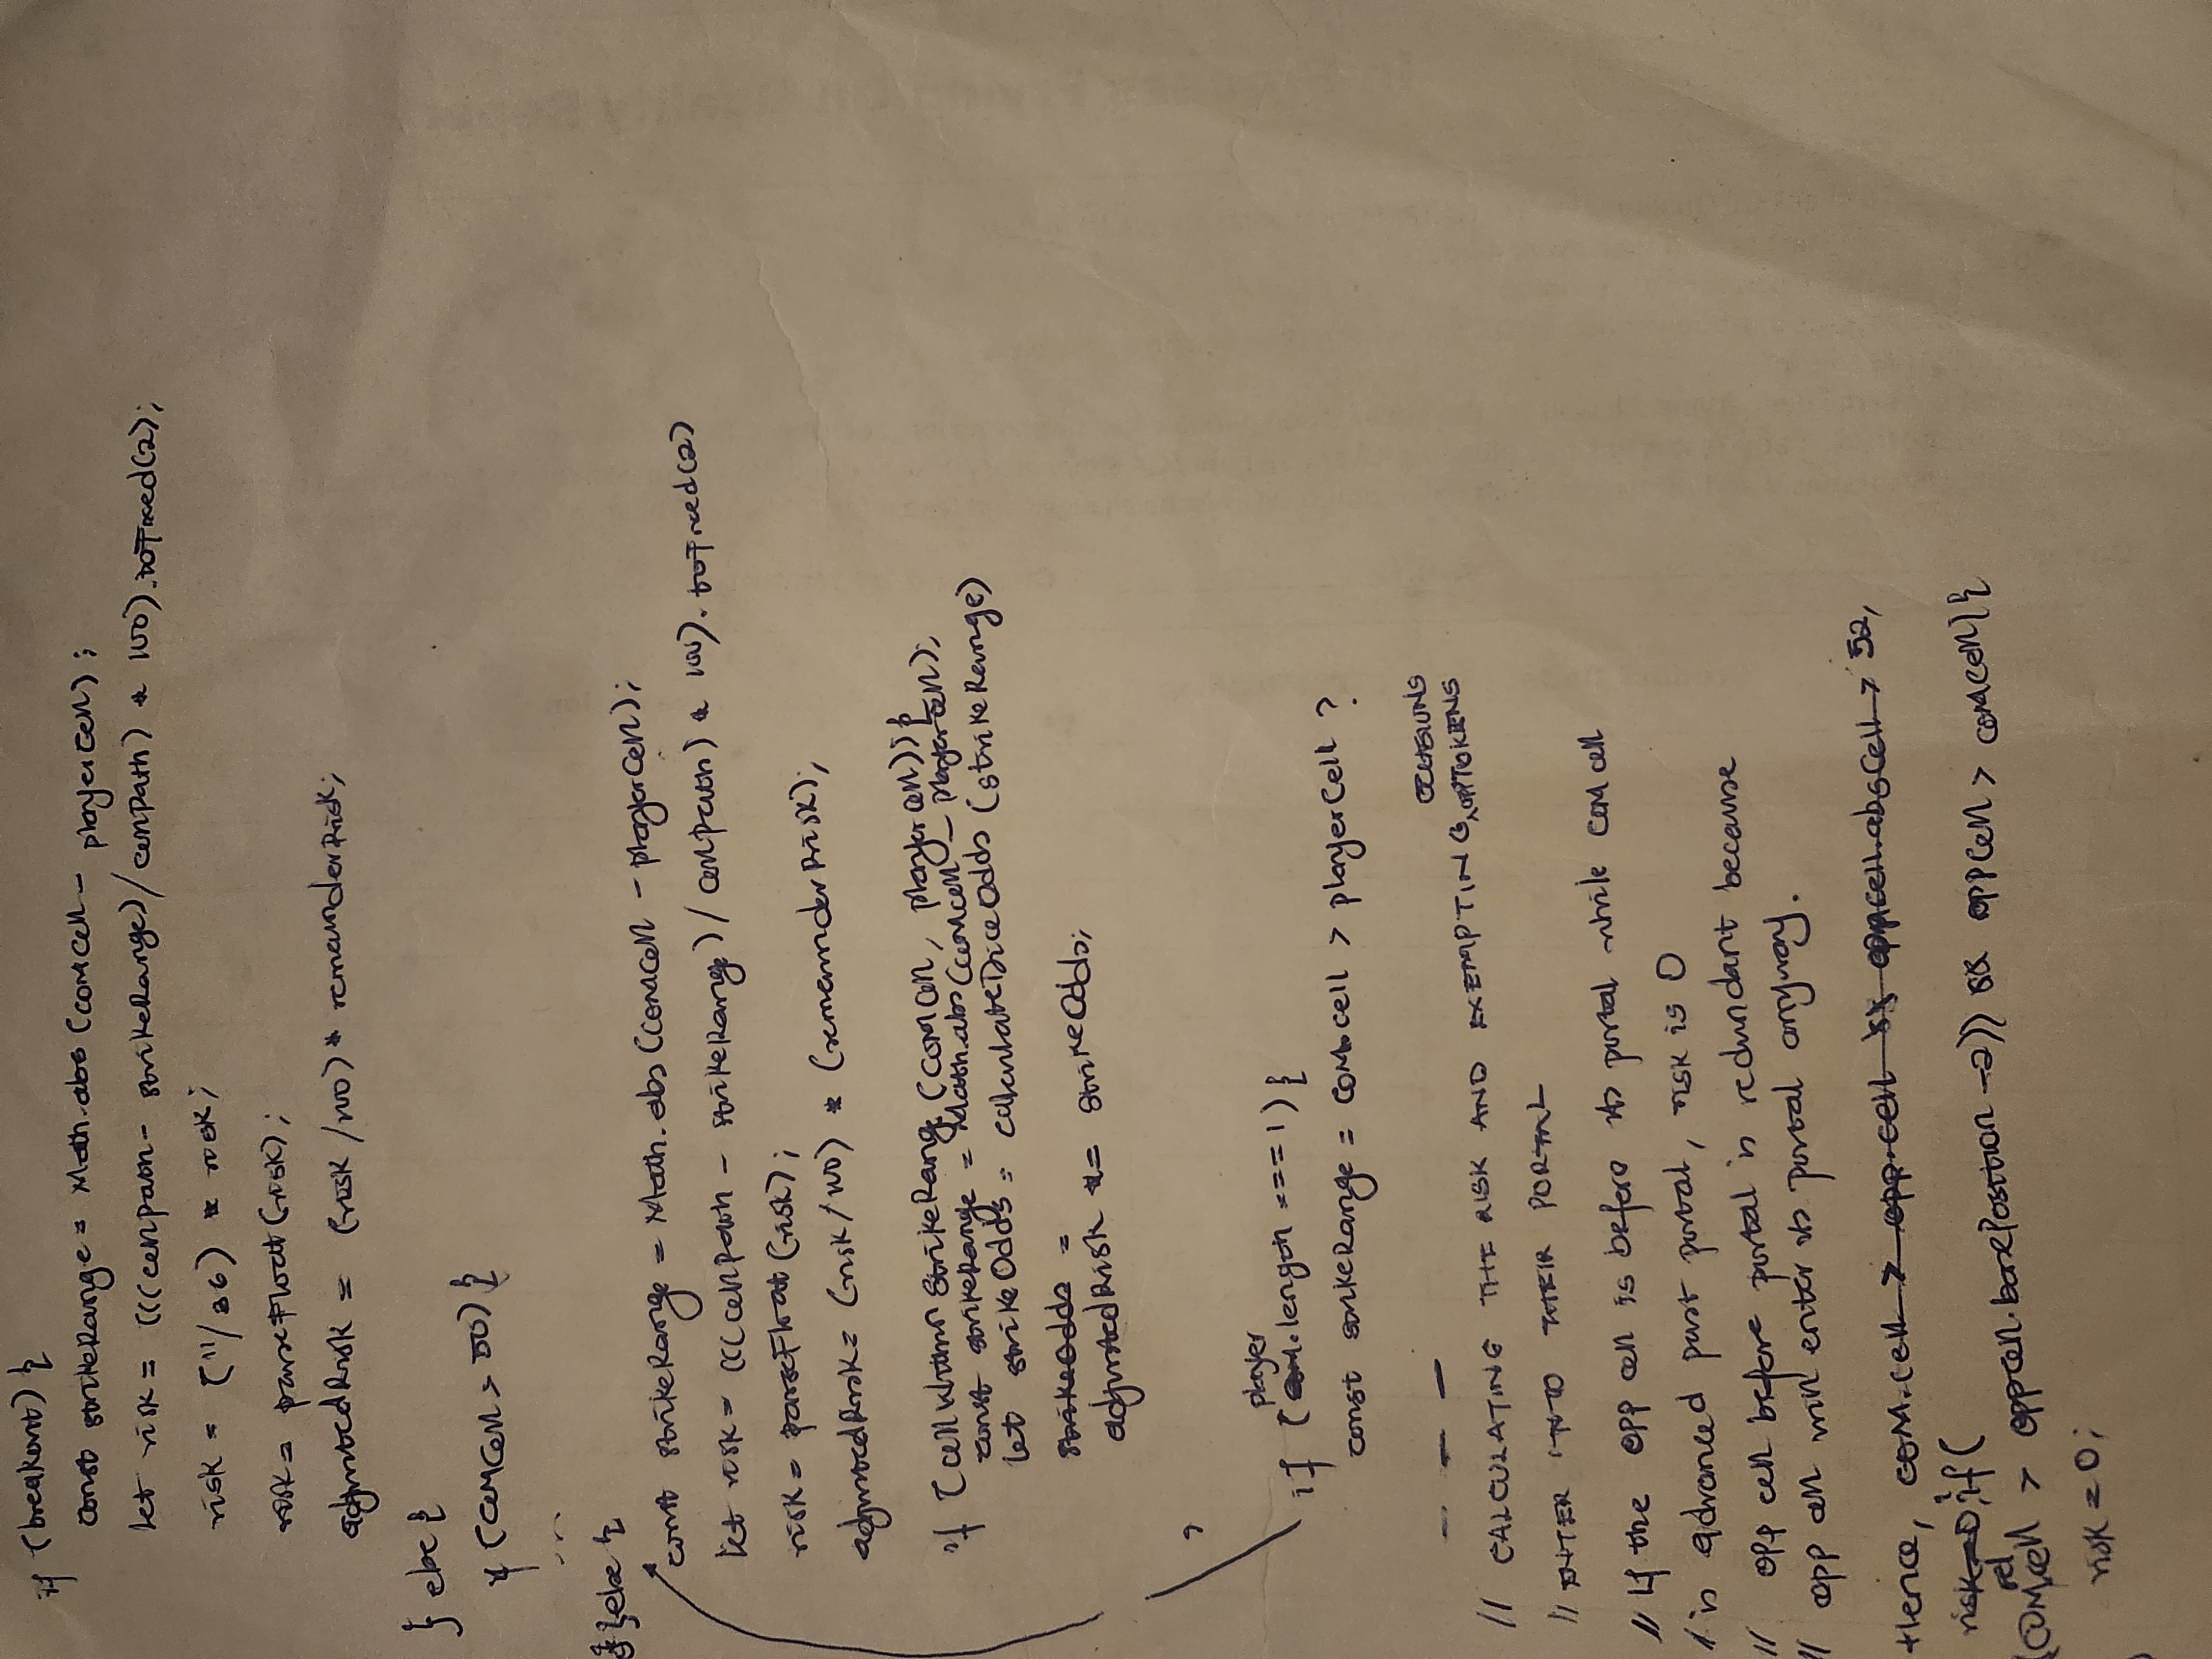 if (breakout) {
const strikeRange = Math.abs (COMCell - playerCell) ;
let risk = (((cellPath - strikeRange) / cellPath) * 100).toFixed(2);
risk = (11/36) * risk;
risk = parseFloat (risk);
adjustedRisk = (risk /100) * remainderRisk;
} else {
if (COMCell > 50) {
...
} else {
const strikeRange = Math.abs (COMCell - playerCell);
let risk = (((cellPath - strikeRange) / cellPath) * 100). toFixed(2)
risk = parseFloat (risk);
adjustedRisk = (risk/100) * (remainderRisk);
if (cellWithinStrikeRange (COMCell, playerCell)) {
const strikeRange = Math.abs (COMCell - playerCell);
let strikeOdds = calculateDiceOdds (strikeRange)
strikeOdds =
adjustedRisk *= strikeOdds;
if (player.length === 1) {
const strikeRange = COM.cell > playerCell ?
- - -
// CALCULATING THE RISK AND EXEMPTING OPPTOKENS
// ENTER INTO THEIR PORTAL
// If the opp cell is before its portal while COM cell
/ is advanced past portal, risk is 0
// opp cell before portal is redundant because
// opp cell will enter its portal anyway.
Hence, COM.cell > opp.cell && oppcell.absCell > 52,
risk=0, if (
(COM rel cell > oppcell.basePosition -2)) && oppCell > COMCell) {
risk = 0;